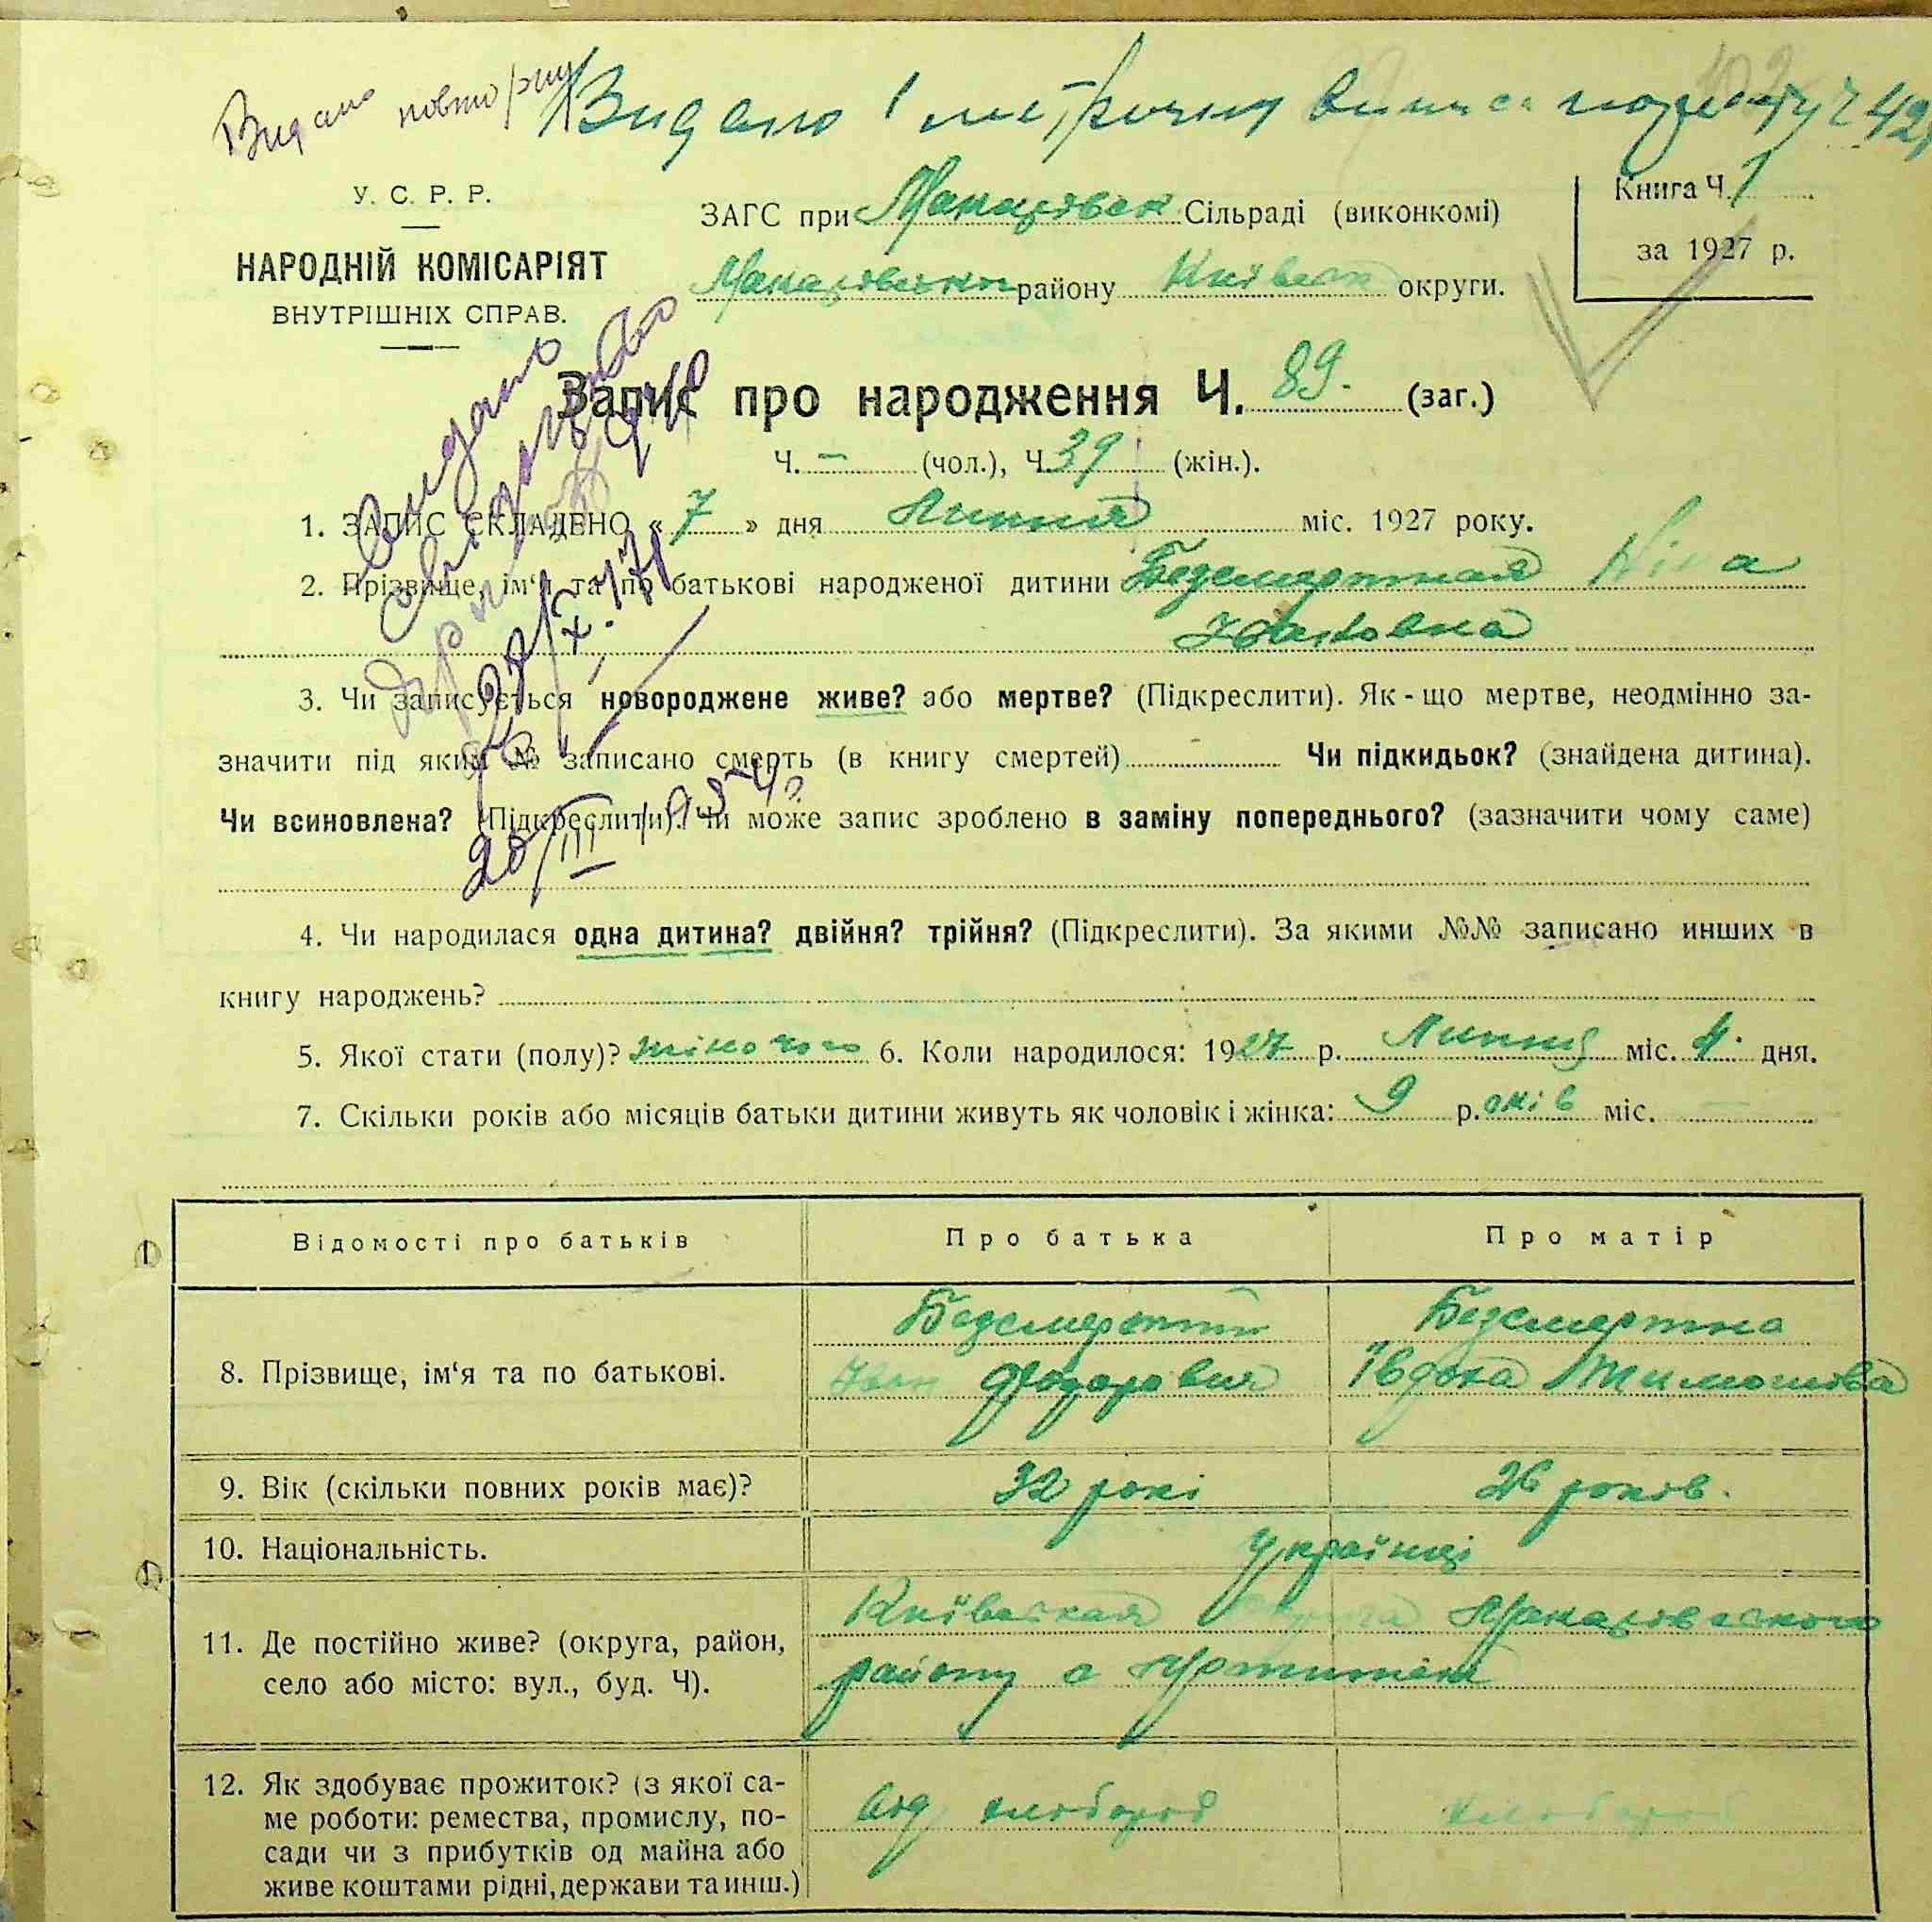 Видано повторну
Видано 1 метричну
У. С. Р. Р.
НАРОДНІЙ КОМІСАРІЯТ
ВНУТРІШНІХ СПРАВ.
ЗАГС при Макарівськ Сільраді (виконкомі)
району Київськ округи.
Книга Ч. 1
за 1927 р.
Запис про народження Ч. 89. (заг.)
Ч. – (чол.), Ч. 39 (жін.).
Видано
1. ЗАПИС СКЛАДЕНО « 7 » дня Липня міс. 1927 року.
2. Прізвище, ім‘я та по батькові народженої дитини Безсмертная Ніна
3. Чи записується новороджене живе? або мертве? (Підкреслити). Як-що мертве, неодмінно за-
значити під яким № записано смерть (в книгу смертей) Чи підкидьок? (знайдена дитина).
Чи всиновлена? (Підкреслити). Чи може запис зроблено в заміну попереднього? (зазначити чому саме)
4. Чи народилася одна дитина? двійня? трійня? (Підкреслити). За якими №№ записано инших в
книгу народжень?
5. Якої стати (полу)? жіночого 6. Коли народилося: 1927 р. Липня міс. 4. дня.
7. Скільки років або місяців батьки дитини живуть як чоловік і жінка: 9 р.оків міс. –
Відомості про батьків
Про батька
Про матір
8. Прізвище, ім‘я та по батькові.
Безсмертній
Іван Федорович
Безсмертна
Ївдоха Тимошова
9. Вік (скільки повних років має)?
32 рокі
26 років.
10. Національність.
українці
11. Де постійно живе? (округа, район,
село або місто: вул., буд. Ч).
Київаская округа Макаровского
району с
12. Як здобуває прожиток? (з якої са-
ме роботи: ремества, промислу, по-
сади чи з прибутків од майна або
живе коштами рідні, держави та инш.)
од хлібороб
хлібороб